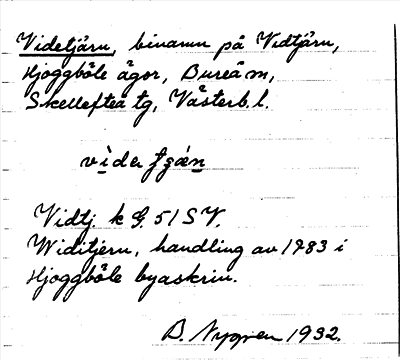 Videtjärn, binamn på Vidtjärn,
Hjoggböle ägor, Bureå sn,
Skellefteå tg, Västerb. l.
Vidtj. k G. 51 SV.
Widitjern, handling av 1783 i
Hjoggböle byaskrin.
B. Nygren 1932.